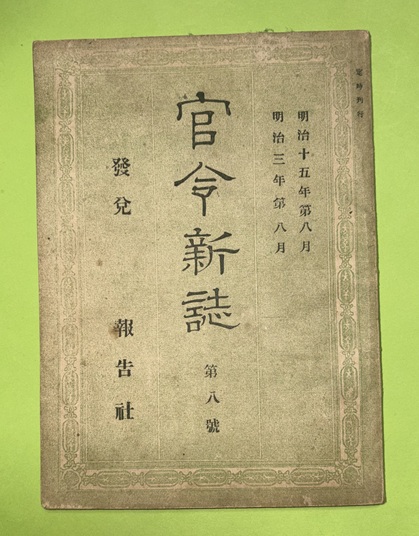 定時刋行
明治十五年第八月
明治三年第八月
官令新誌
第八號
發兌
報告社